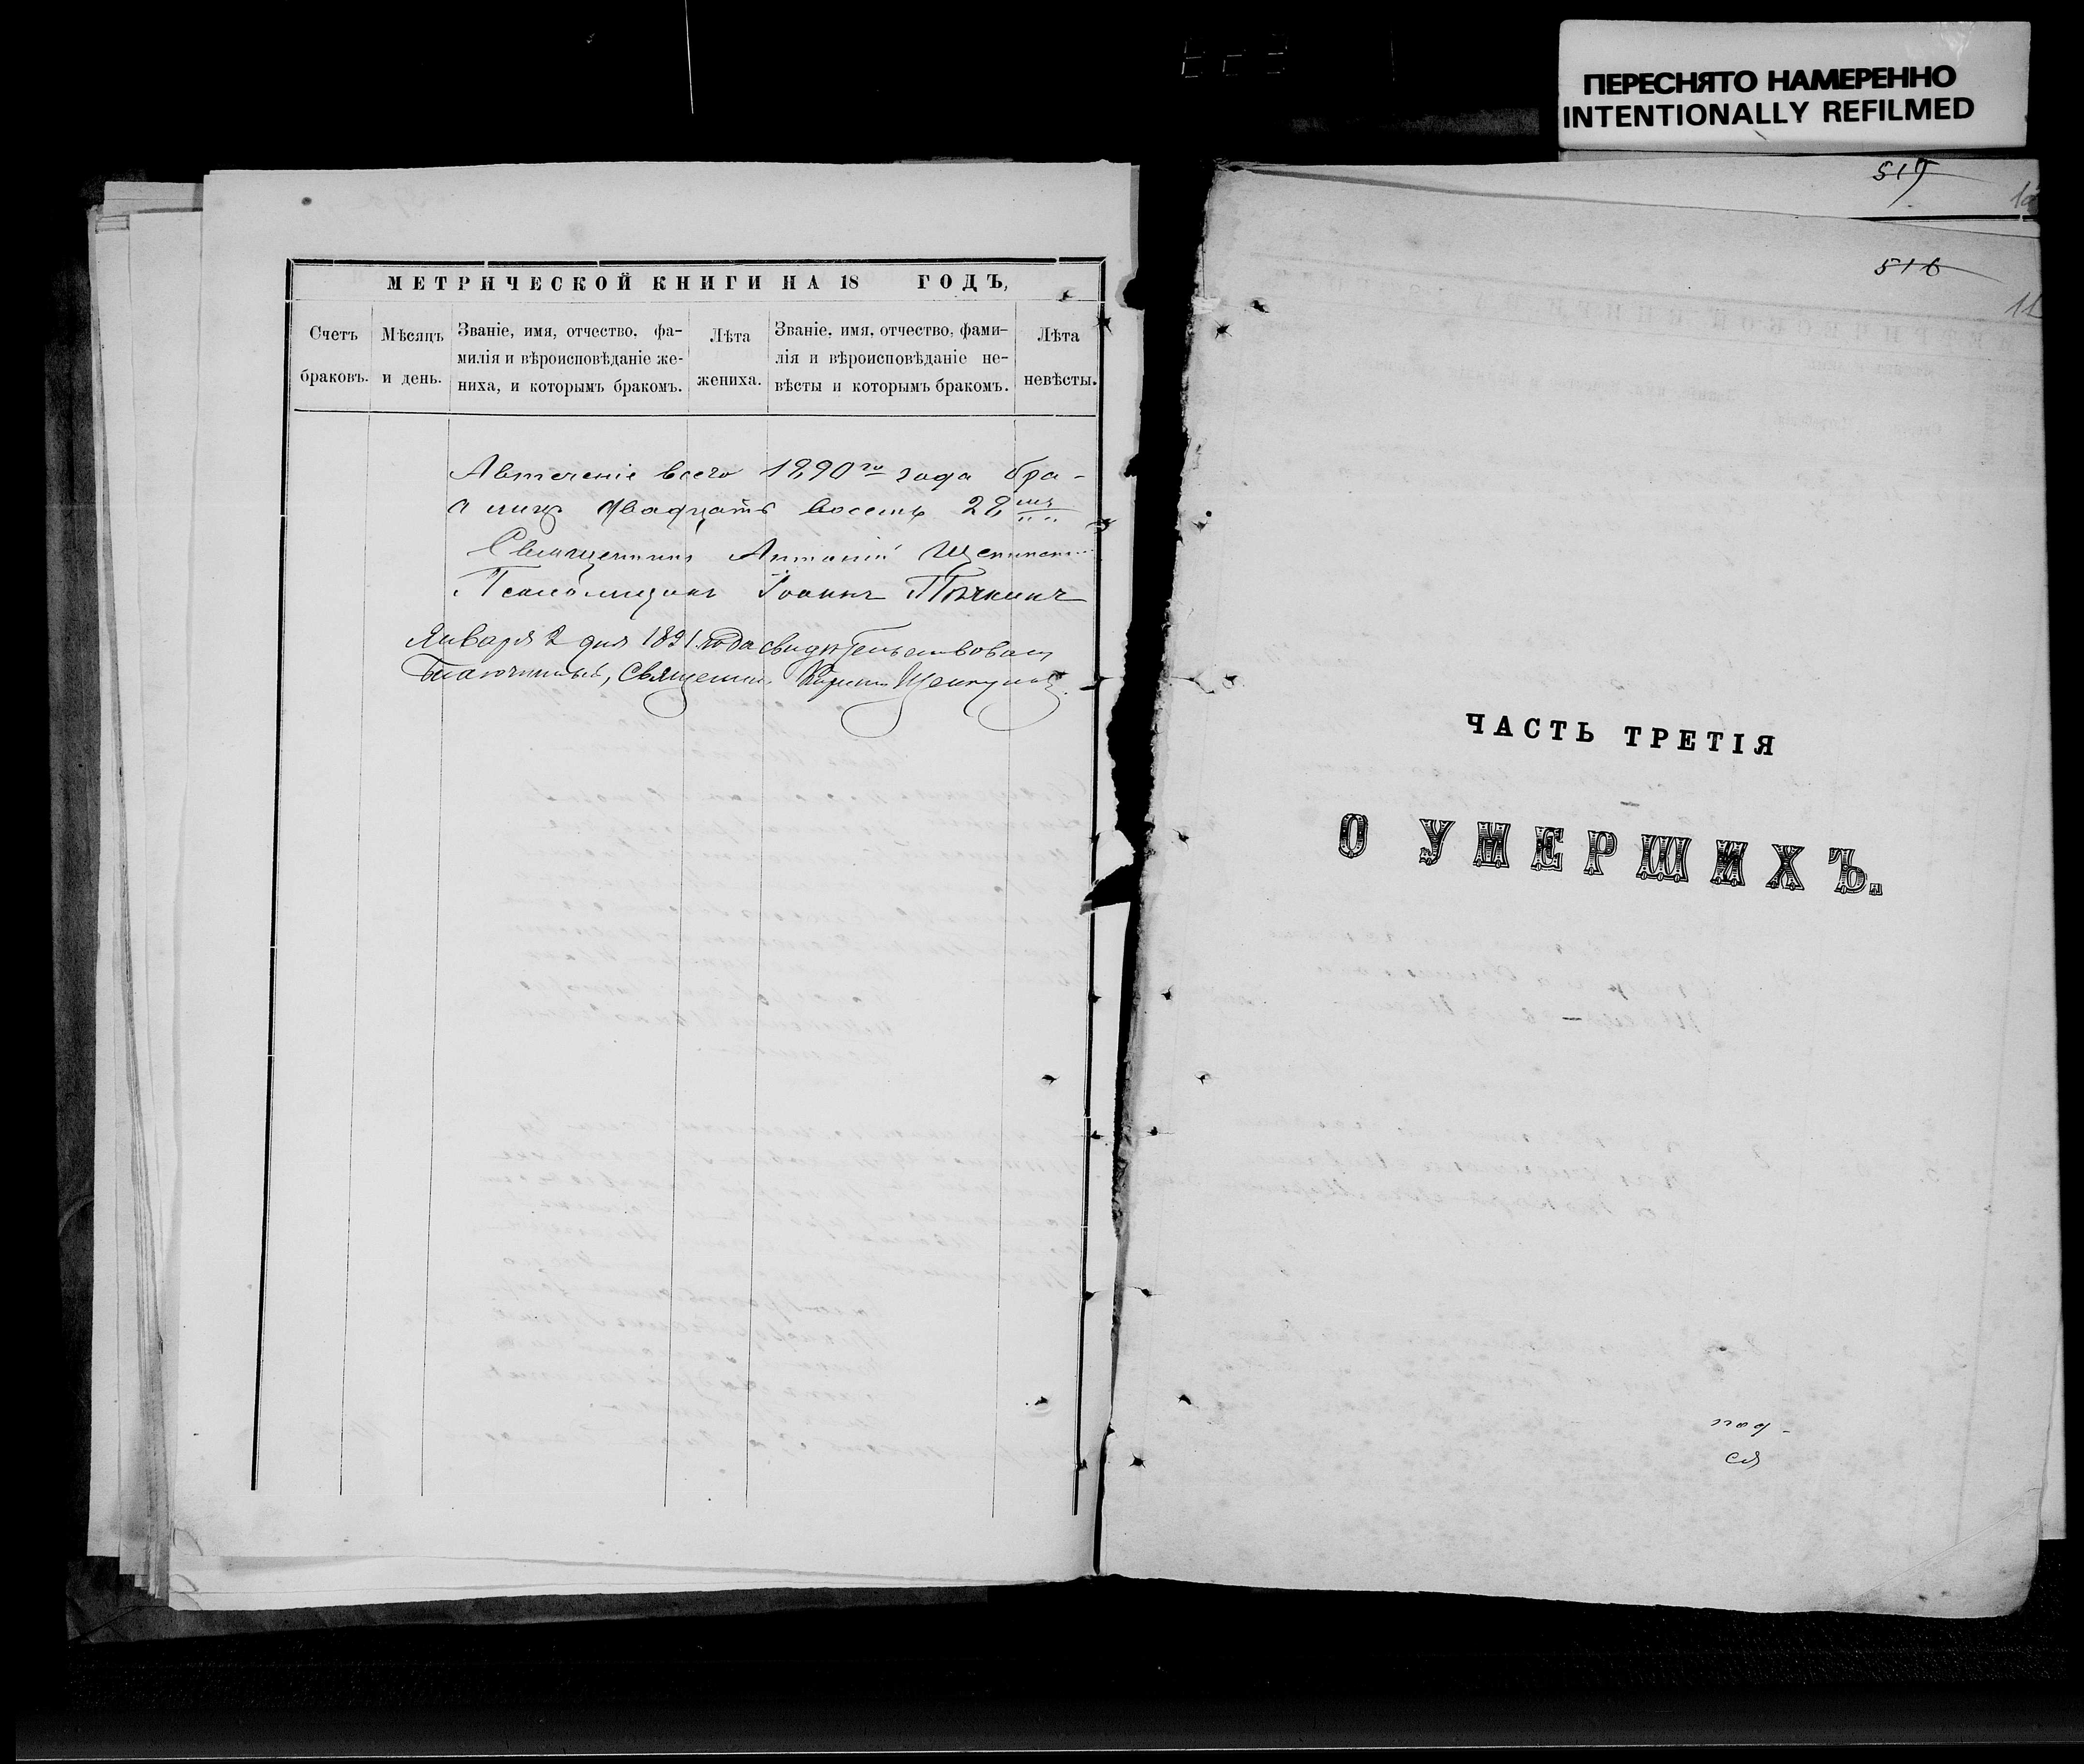 ПЕРЕСНЯТО НАМЕРЕННО
INTENTIONALLY REFILMED
519
516
11
МЕТРИЧЕСКОЙ КНИГИ НА 18 ГОДЪ,
Счетъ браковъ.
Мѣсяцъ и день.
Званіе, имя, отчество, фа-
милія и вѣроисповѣданіе же-
ниха, и которымъ бракомъ.
Лѣта жениха.
Званіе, имя, отчество, фами-
лія и вѣроисповѣданіе не-
вѣсты и которымъ бракомъ.
Лѣта невѣсты.
Автеченіе всего 1890го года бра-
двадцать восемь 28
Священникъ Антоній
Псаломщикъ Іоаннъ
Января 2 дня 1891 года свидѣтельствовалъ
Благочинный, Священникъ
ЧАСТЬ ТРЕТІЯ
О УМЕРШИХЪ.
под-
ся